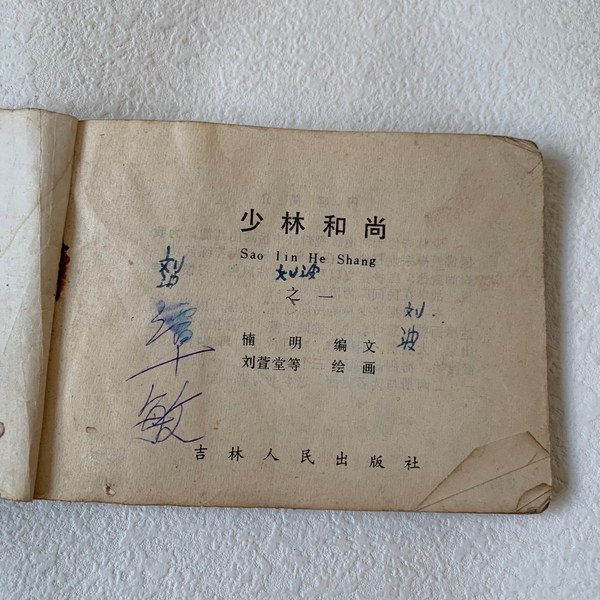 少林和尚
Sao lin He Shang
刘波
之一
刘
波
楠明 编文
刘萱堂等 绘画
覃
敏
吉林人民出版社